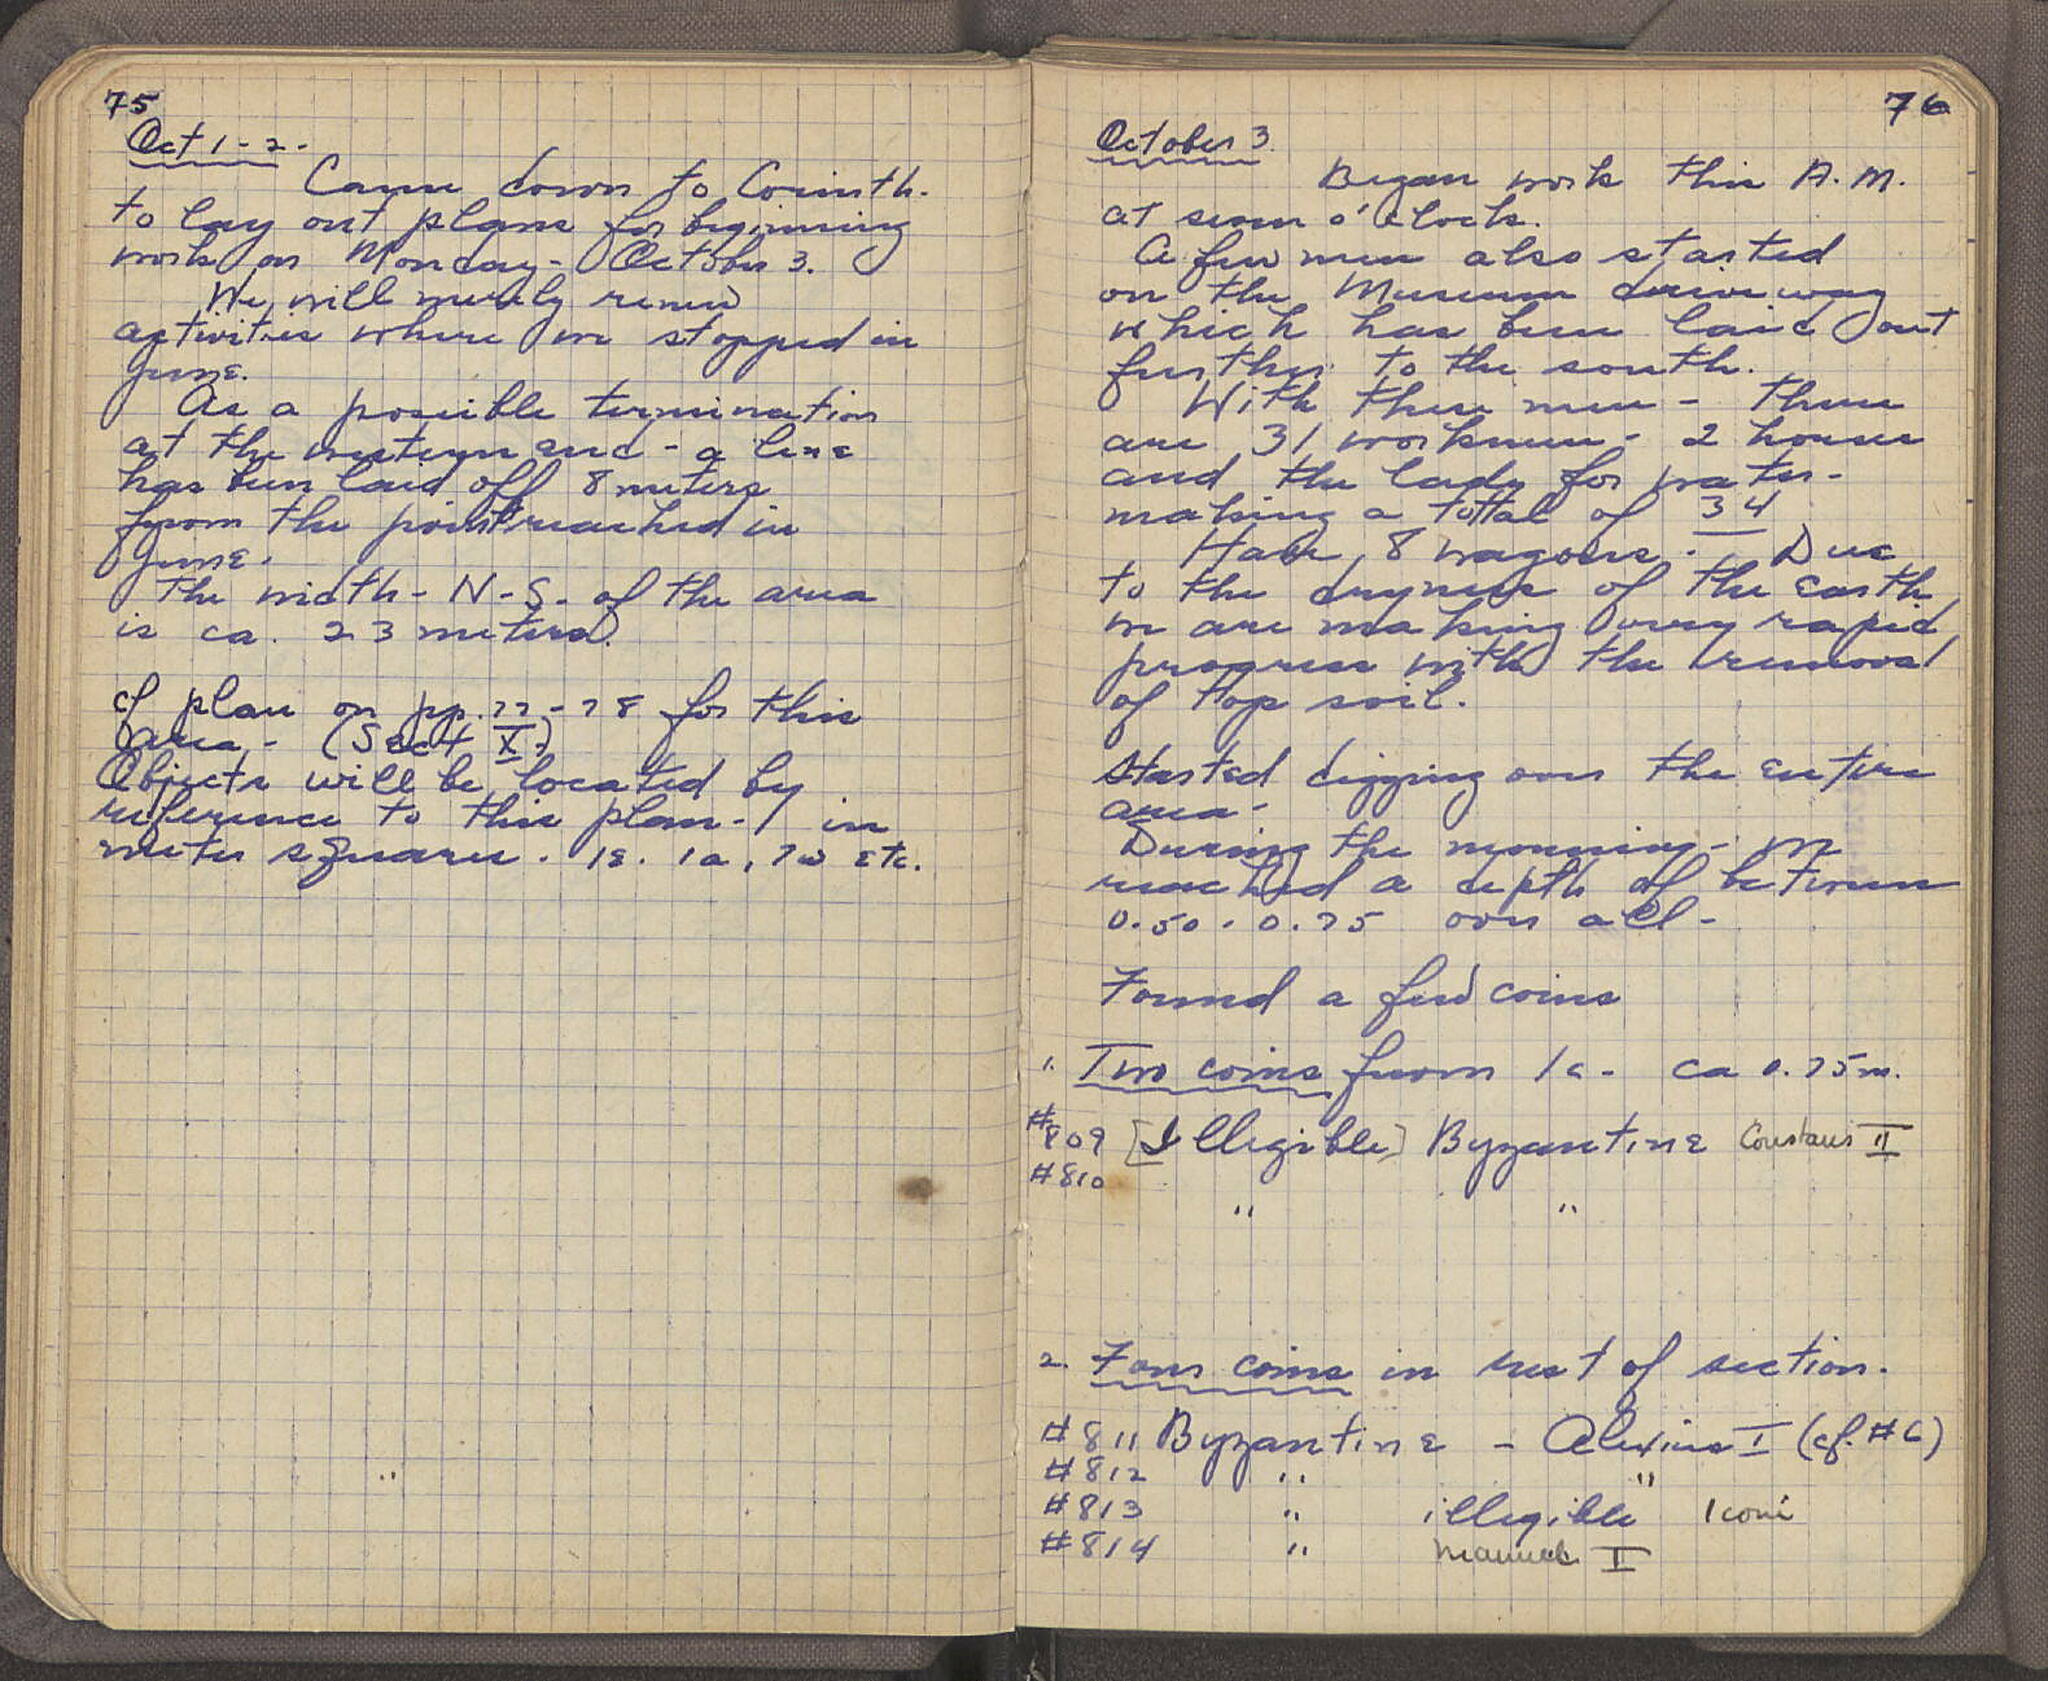 75
Oct 1-2-
Came down to Corinth.
to lay out plans for beginning
work on Monday - October 3.
We will merely renew
activities where we stopped in
June.
As a possible termination
at the western end - a line
has been laid off 8 meters
from the point reached in
June.
The width - N-S- of the area
is ca. 23 meters.
cf plan on pp. 77-78 for this
area - (Sect X.)
Objects will be located by
reference to this plan - in
meter squares. ie. 1a, 7w etc.
"
76
October 3.
Began work this A.M.
at seven o'clock.
A few men also started
on the Museum driveway
which has been laid out
further to the south.
With these men - there
are 31 workmen - 2 horses
and the lady for water -
making a tottal of 34
Have 8 wagons. Due
to the dryness of the earth
we are making very rapid
progress with the removal
of top soil.
Started digging over the entire
area -
During the morning - we
reached a depth of between
0.50 - 0.75 over all -
Found a few coins
1. Two coins from 1c - ca 0.75m.
#809 [Illegible] Byzantine Constans II
#810
" "
2. Four coins in rest of section.
#811 Byzantine - Alexius I (cf. #6)
#812 " "
#813 " illegible 1 coin
#814 " Manuel I